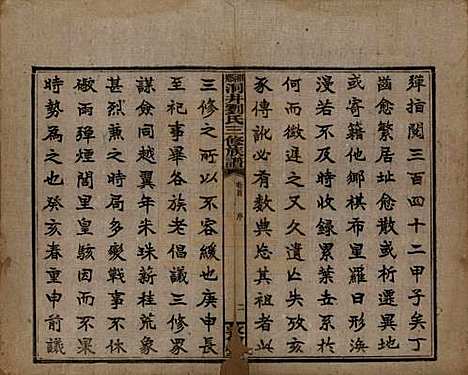 殫指閱三百四十二甲子矣丁
齒愈繁居址愈散或析遷異地
或寄籍他鄉棋布星羅日形瀰
漫若不及時收集累葉去疾亥
豕傳訛必有數典忘其祖者此
洞井劉氏三修族譜
卷首 序
二
三修之所以不容緩也庚申長
至祀事畢各族老倡議三修詢
謀僉同越翼年米珠薪桂荒象
甚烈兼之時局多變戰事不休
礮雨彈煙閭里皇駭因而不果
時勢為之也癸亥春重申前議